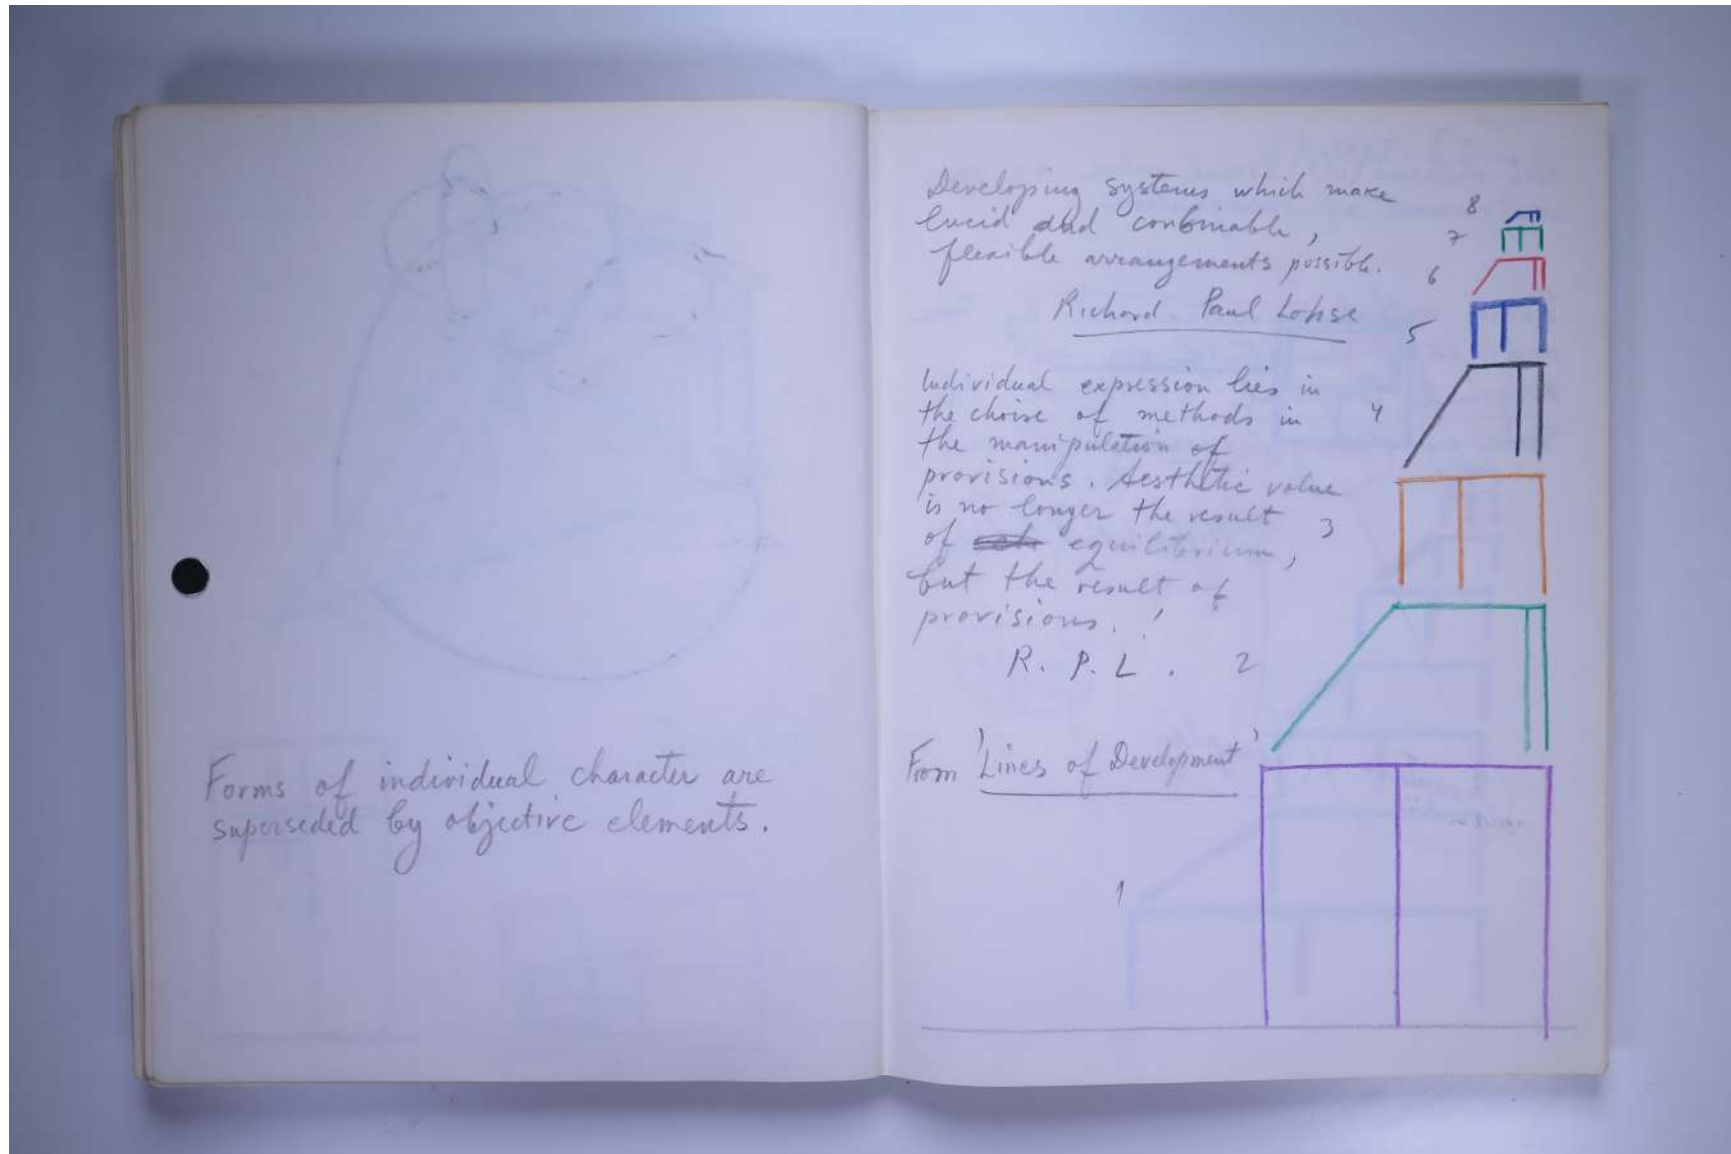 Forms of individual character are
superseded by objective elements.
Developing systems which make
lucid and combinable,
flexible arrangements possible.
Richard Paul Lohse
Individual expression lies in
the choise of methods in
the manipulation of
provisions. Aesthetic value
is no longer the result
of equilibrium,
but the result of
provisions. !
R. P. L.
From 'Lines of Development'
8
7
6
5
4
3
2
1